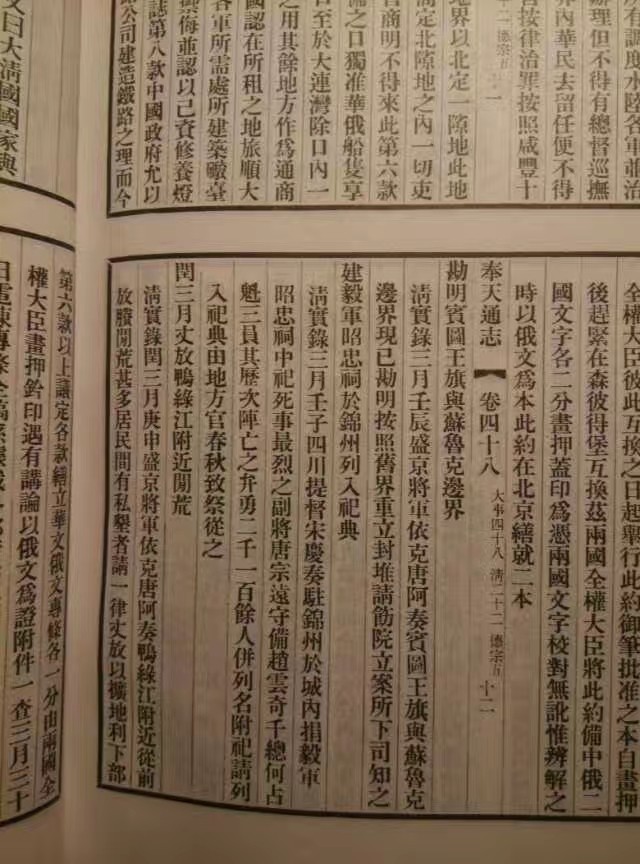 所有調度水陸各軍並治
辦理但不得有總督巡撫
界內華民去留任便不得
按律治罪按照咸豐十
十二 德宗五 十一
地界以北定一隙地此地
商定北隙地之內一切吏
官商明不得來此第六款
之口獨准華俄船隻享
口至於大連灣除口內一
之用其餘地方作爲通商
國認在所租之地旅順大
各軍所需處所建築礮臺
禦侮並認以己資修養燈
誌第八款中國政府允以
路公司建造鐵路之理而今
全權大臣彼此互換之日起舉行此約御筆批准之本自畫押
後趕緊在森彼得堡互換茲兩國全權大臣將此約備中俄二
國文字各二分畫押蓋印爲憑兩國文字校對無訛惟辨解之
時以俄文爲本此約在北京繕就二本
奉天通志 【 卷四十八 大事四十八 淸二十二 德宗五 十二
勘明賓圖王旗與蘇魯克邊界
淸實錄三月壬辰盛京將軍依克唐阿奏賓圖王旗與蘇魯克
邊界現已勘明按照舊界重立封堆請飭院立案所下司知之
建毅軍昭忠祠於錦州列入祀典
淸實錄三月壬子四川提督宋慶奏駐錦州於城內捐毅軍
昭忠祠中祀死事最烈之副將唐宗遠守備趙雲奇千總何占
魁三員其歷次陣亡之弁勇二千一百餘人併列名附祀請列
入祀典由地方官春秋致祭從之
閏三月丈放鴨綠江附近閒荒
淸實錄閏三月庚申盛京將軍依克唐阿奏鴨綠江附近從前
放賸閒荒甚多居民間有私墾者請一律丈放以擴地利下部
文曰大淸國國家與
第六款以上議定各款繕立華文俄文專條各一分由兩國全
權大臣畫押鈐印遇有講論以俄文爲證附件一查三月三十